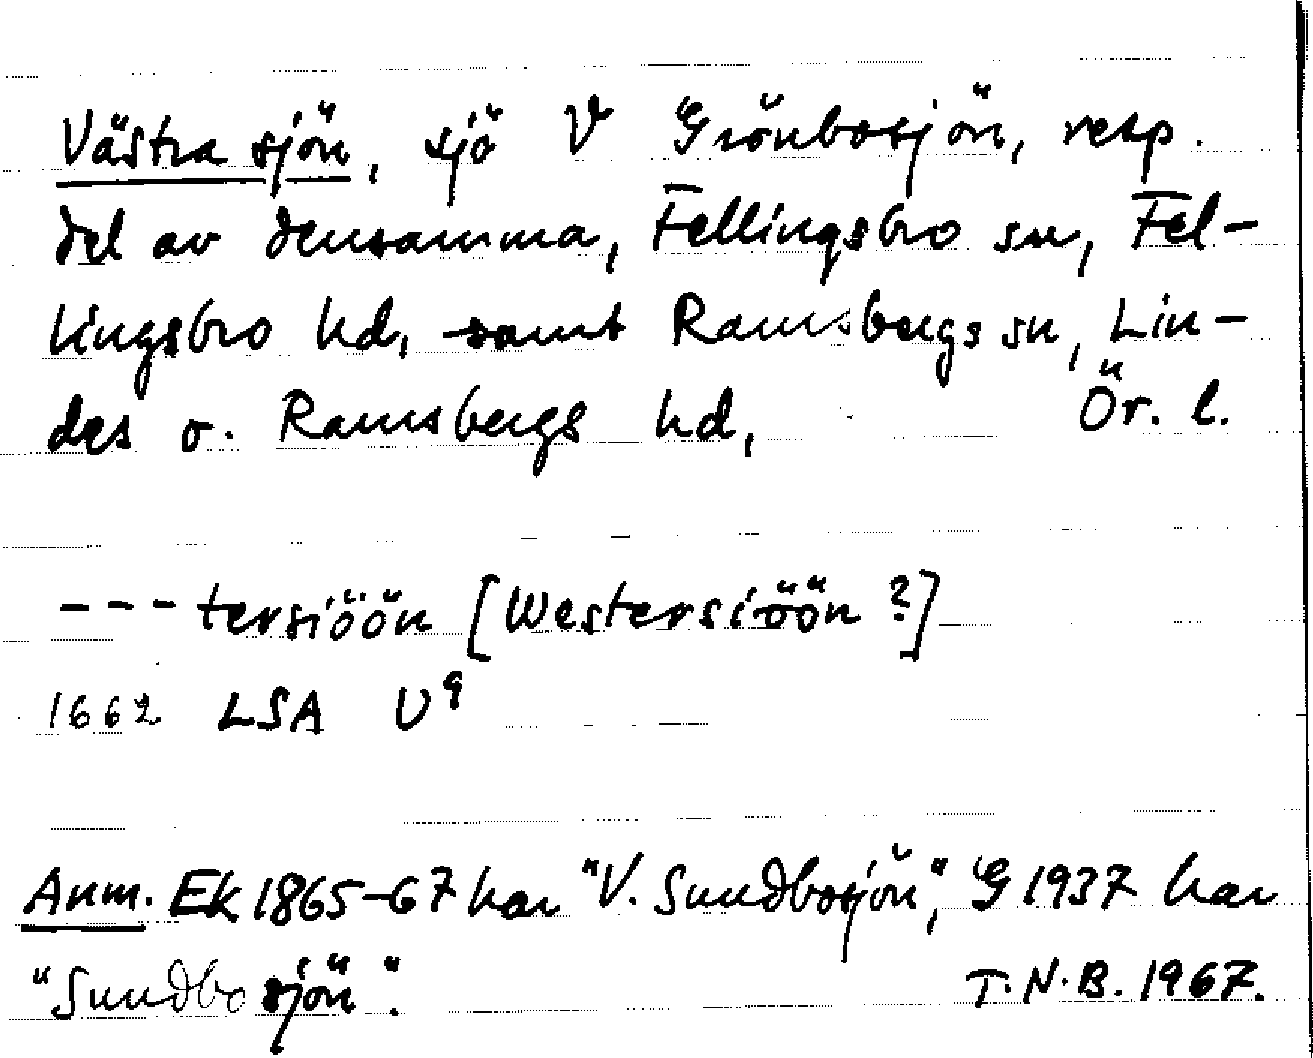 Västra sjön, sjö V Grönbosjön, resp.
del av densamma, Fellingsbro sn, Fel-
lingsbro hd, samt Ramsbergs sn, Lin-
des o. Ramsbergs hd, Ör. l.
--- tersiöön [Westersiöön ?]
1662 LSA U9
Anm. Ek 1865-67 har "V. Sundbosjön", G 1937 har
"Sundbosjön".
T.N.B. 1967.